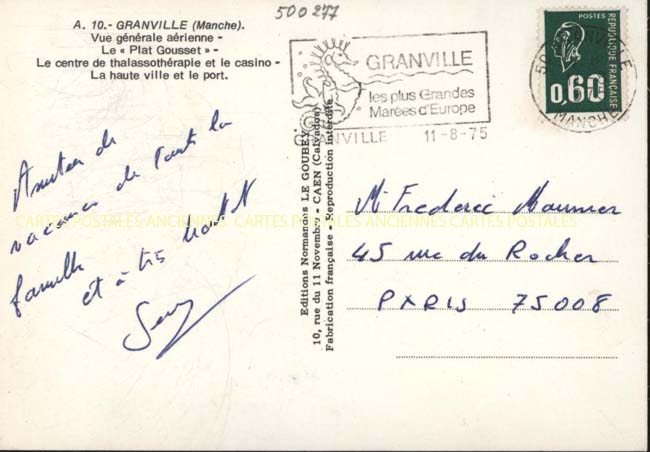 500277
A. 10.- GRANVILLE (Manche).
Vue générale aérienne -
Le « Plat Gousset » -
Le centre de thalassothérapie et le casino -
La haute ville et le port.
GRANVILLE
les plus Grandes
Marées d'Europe
GRANVILLE 11-8-75
POSTES
REPUBLIQUE FRANÇAISE
0,60
MANCHE
de
vacances de toute la
famille
et à très
Editions Normandes LE GOUBEY
10, rue du 11 Novembre - CAEN (Calvados)
Fabrication française - Reproduction interdite
Mr Frederic
45 rue du Rocher
PARIS 75008
CARTES POSTALES ANCIENNES CARTES POSTALES ANCIENNES CARTES POSTALES